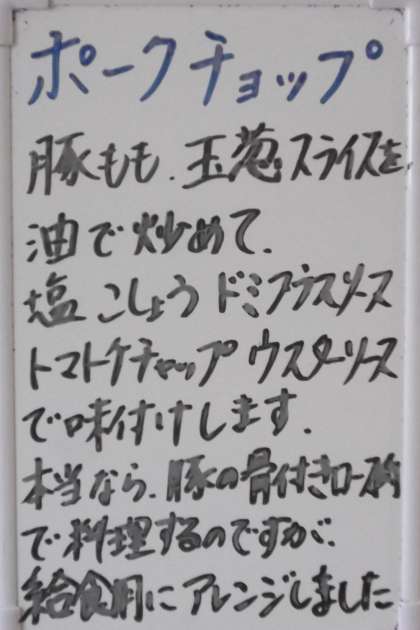 ポークチョップ
豚もも、玉葱スライスを、
油で炒めて、
塩こしょうドミグラスソース
トマトケチャップ ウスターソース
で味付けします。
本当なら、豚の骨付きロース肉
で料理するのですが、
給食用にアレンジしました